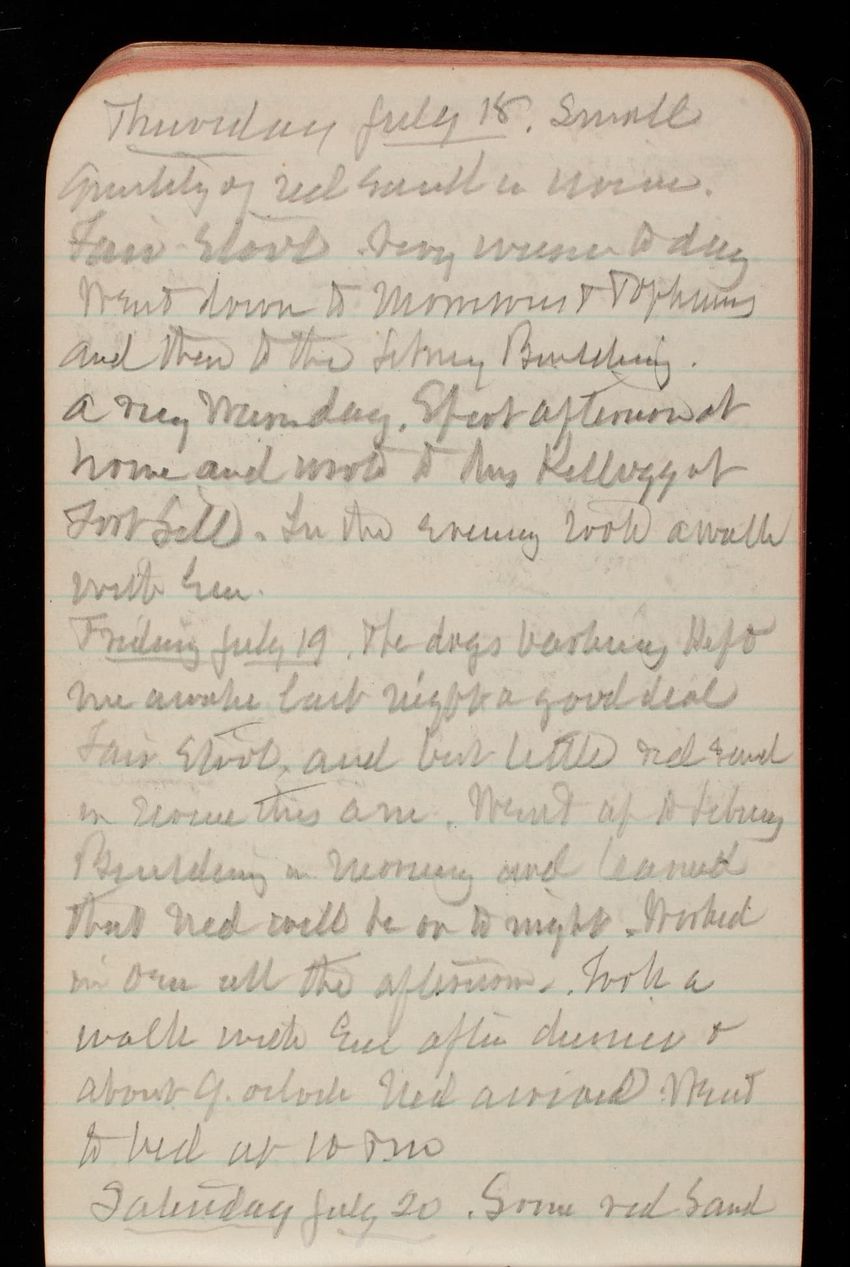 Thursday July 18. Small
quantity of red sand in urine.
Fair Stool. Very warm to day
Went down to Morrisons & Tophams
and then to the Library Building.
a very warm day. Spent afternoon at
home and wrote to Mrs Kellogg at
Fort Sill. In the evening took a walk
with Eva.
Friday July 19. The dogs barking Kept
me awake last night a good deal
Fair Stool, and but little red sand
in urine this am. Went up to Library
Building in morning and learned
that Ned will be on to night. Worked
in den all the afternoon. Took a
walk with Eva after dinner &
about 9. oclock Ned arrived Went
to bed at 10 PM
Saturday July 20. Some red Sand